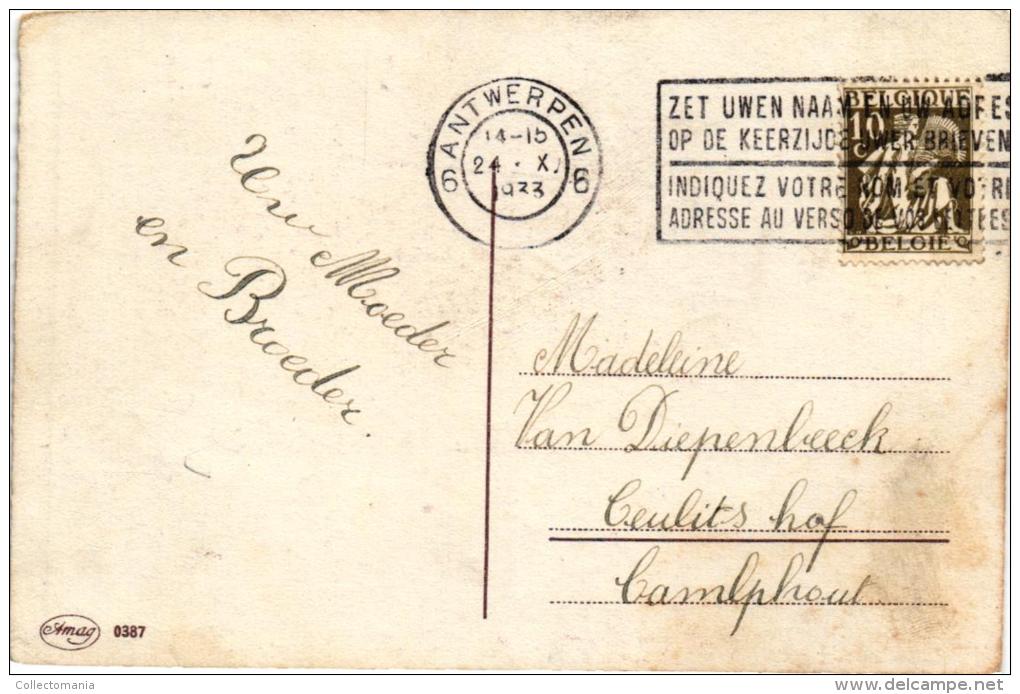 ANTWERPEN
6 6
14-15
24 · XI
1933
ZET UWEN NAAM EN UW ADRES
OP DE KEERZIJDE UWER BRIEVEN
INDIQUEZ VOTRE NOM ET VOTRE
ADRESSE AU VERSO DE VOS LETTRES
BELGIQUE
10
c
BELGIË
Uw Moeder
en Broeder.
Madeleine
Van Diepenbeeck
Ceulits hof
Camlphout
Amag 0387
Collectomania
www.delcampe.net